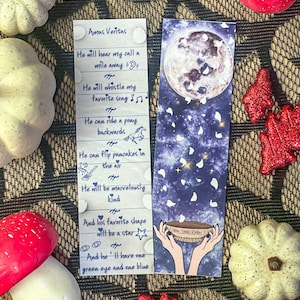 Amas Veritas
He will hear my call a
mile away
He will whistle my
favorite song
He can ride a pony
backwards
He can flip pancakes in
the air
He will be marvelously
kind
And his favorite shape
will be a star
And he'll have one
green eye and one blue